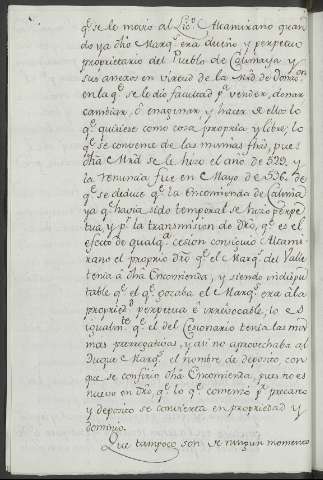 qe. se le movio al Licdo. Altamirano quan
do ya dho Marqs. era dueño y perpetuo
proprietario del Pueblo de Calimaya y
sus anexos en virtud de la Mrd de donon.
en la qe. se le dio facultad pa. vender, donar
cambiar, ó enagenar, y hacer de ellos lo
qe. quisiere como cosa propria y libre, lo
qe. se convence de las mismas fhas, pues
dha Mrd se le hizo el año de 529. y
la renuncia fue en Mayo de 536. de
qe. se deduce qe. la Encomienda de Calima
ya qe. havia sido temporal se hizo perpe
tua y pr. la transmision de Dro, qe. es el
efecto de qualqa. cesion consiguio Altami
rano el proprio Dro qe. el Marqs. del Valle
tenia á dha Encomienda, y siendo indispu
table qe. el qe. gozaba el Marqs. era á la
propriedd. perpetua é irrevocable, lo es
igualmte. qe. el del Cesionario tenia las mis
mas prerrogativas, y asi no aprovechaba al
Duque Marqs. el nombre de deposito, con
que se confirio dha Encomienda, pues no es
nuevo en Dro qe. lo qe. comenzó pr. precario
y deposito se convierta en propriedad y
dominio.
Que tampoco son de ningun momento